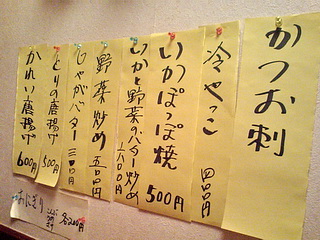 かつお刺
冷やっこ 四〇〇円
いかぽっぽ焼 500円
いかと野菜のバター炒め 六〇〇円
野菜炒め 五〇〇円
じゃがバター 三〇〇円
とりの唐揚げ 500円
かれい唐揚げ 600円
おにぎり 各200円